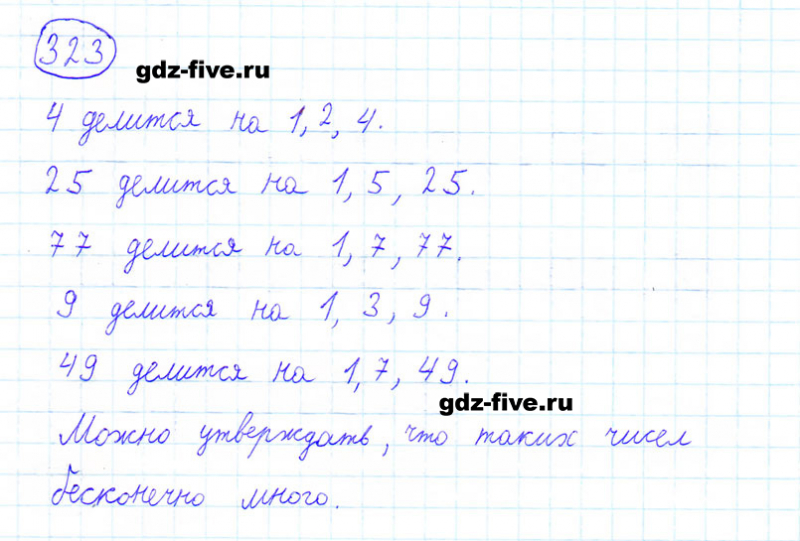 323
gdz-five.ru
4 делится на 1, 2, 4.
25 делится на 1, 5, 25.
77 делится на 1, 7, 77.
9 делится на 1, 3, 9.
49 делится на 1, 7, 49.
gdz-five.ru
Можно утверждать, что таких чисел
бесконечно много.